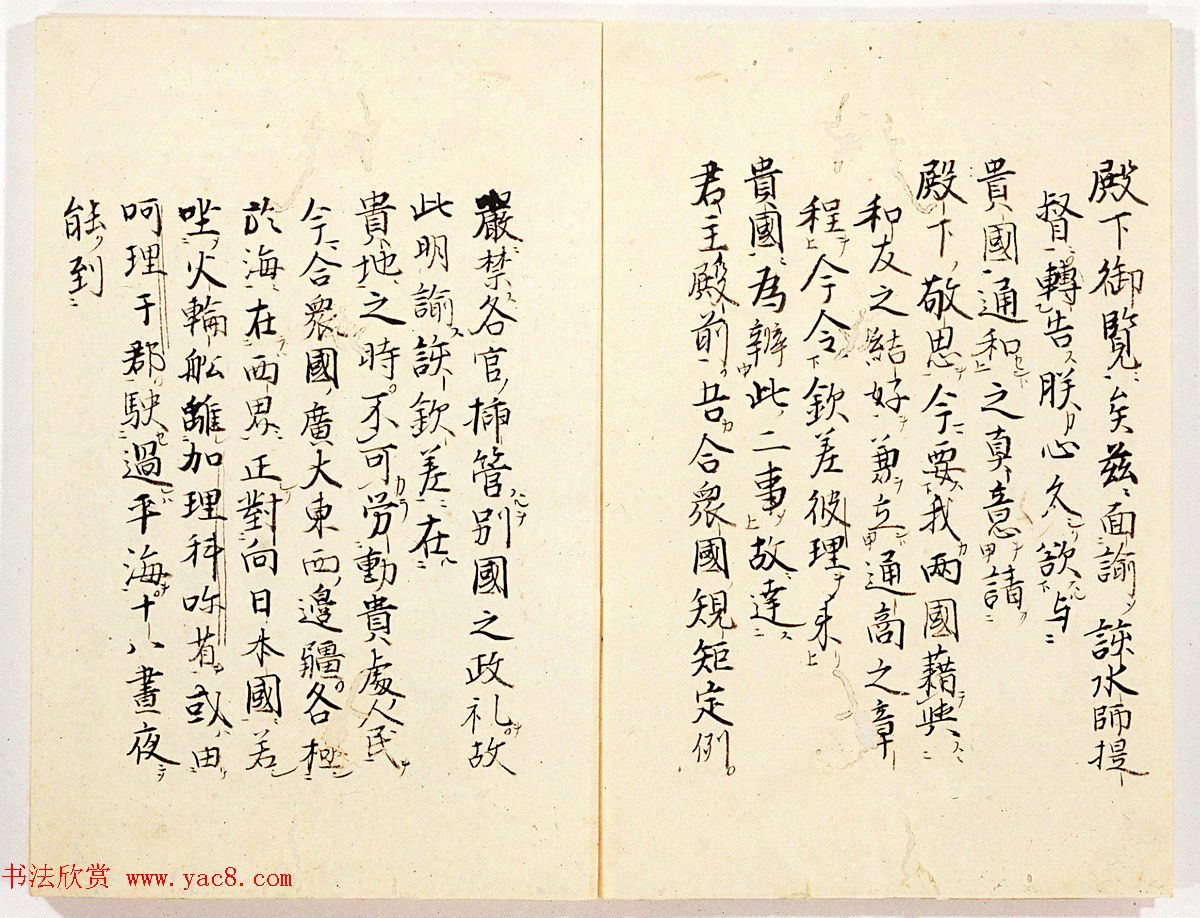 殿下御覽矣茲面諭該水師提
督轉告朕心久欲与
貴國通和之真意請
殿下敬思今要我兩國藉典
和友之結好兼立通商之章
程今令欽差彼理來
貴國為辦此二事故達
君主殿前吾合衆國規矩定例
嚴禁各官揷管別國之政礼故
此明諭該欽差在
貴地之時不可労動貴處人民
今合衆國廣大東西邊疆各極
於海在西界正對向日本國若
坐火輪船離加理科呢若或由
呵理干郡駛過平海十八晝夜
能到
书法欣赏 www.yac8.com